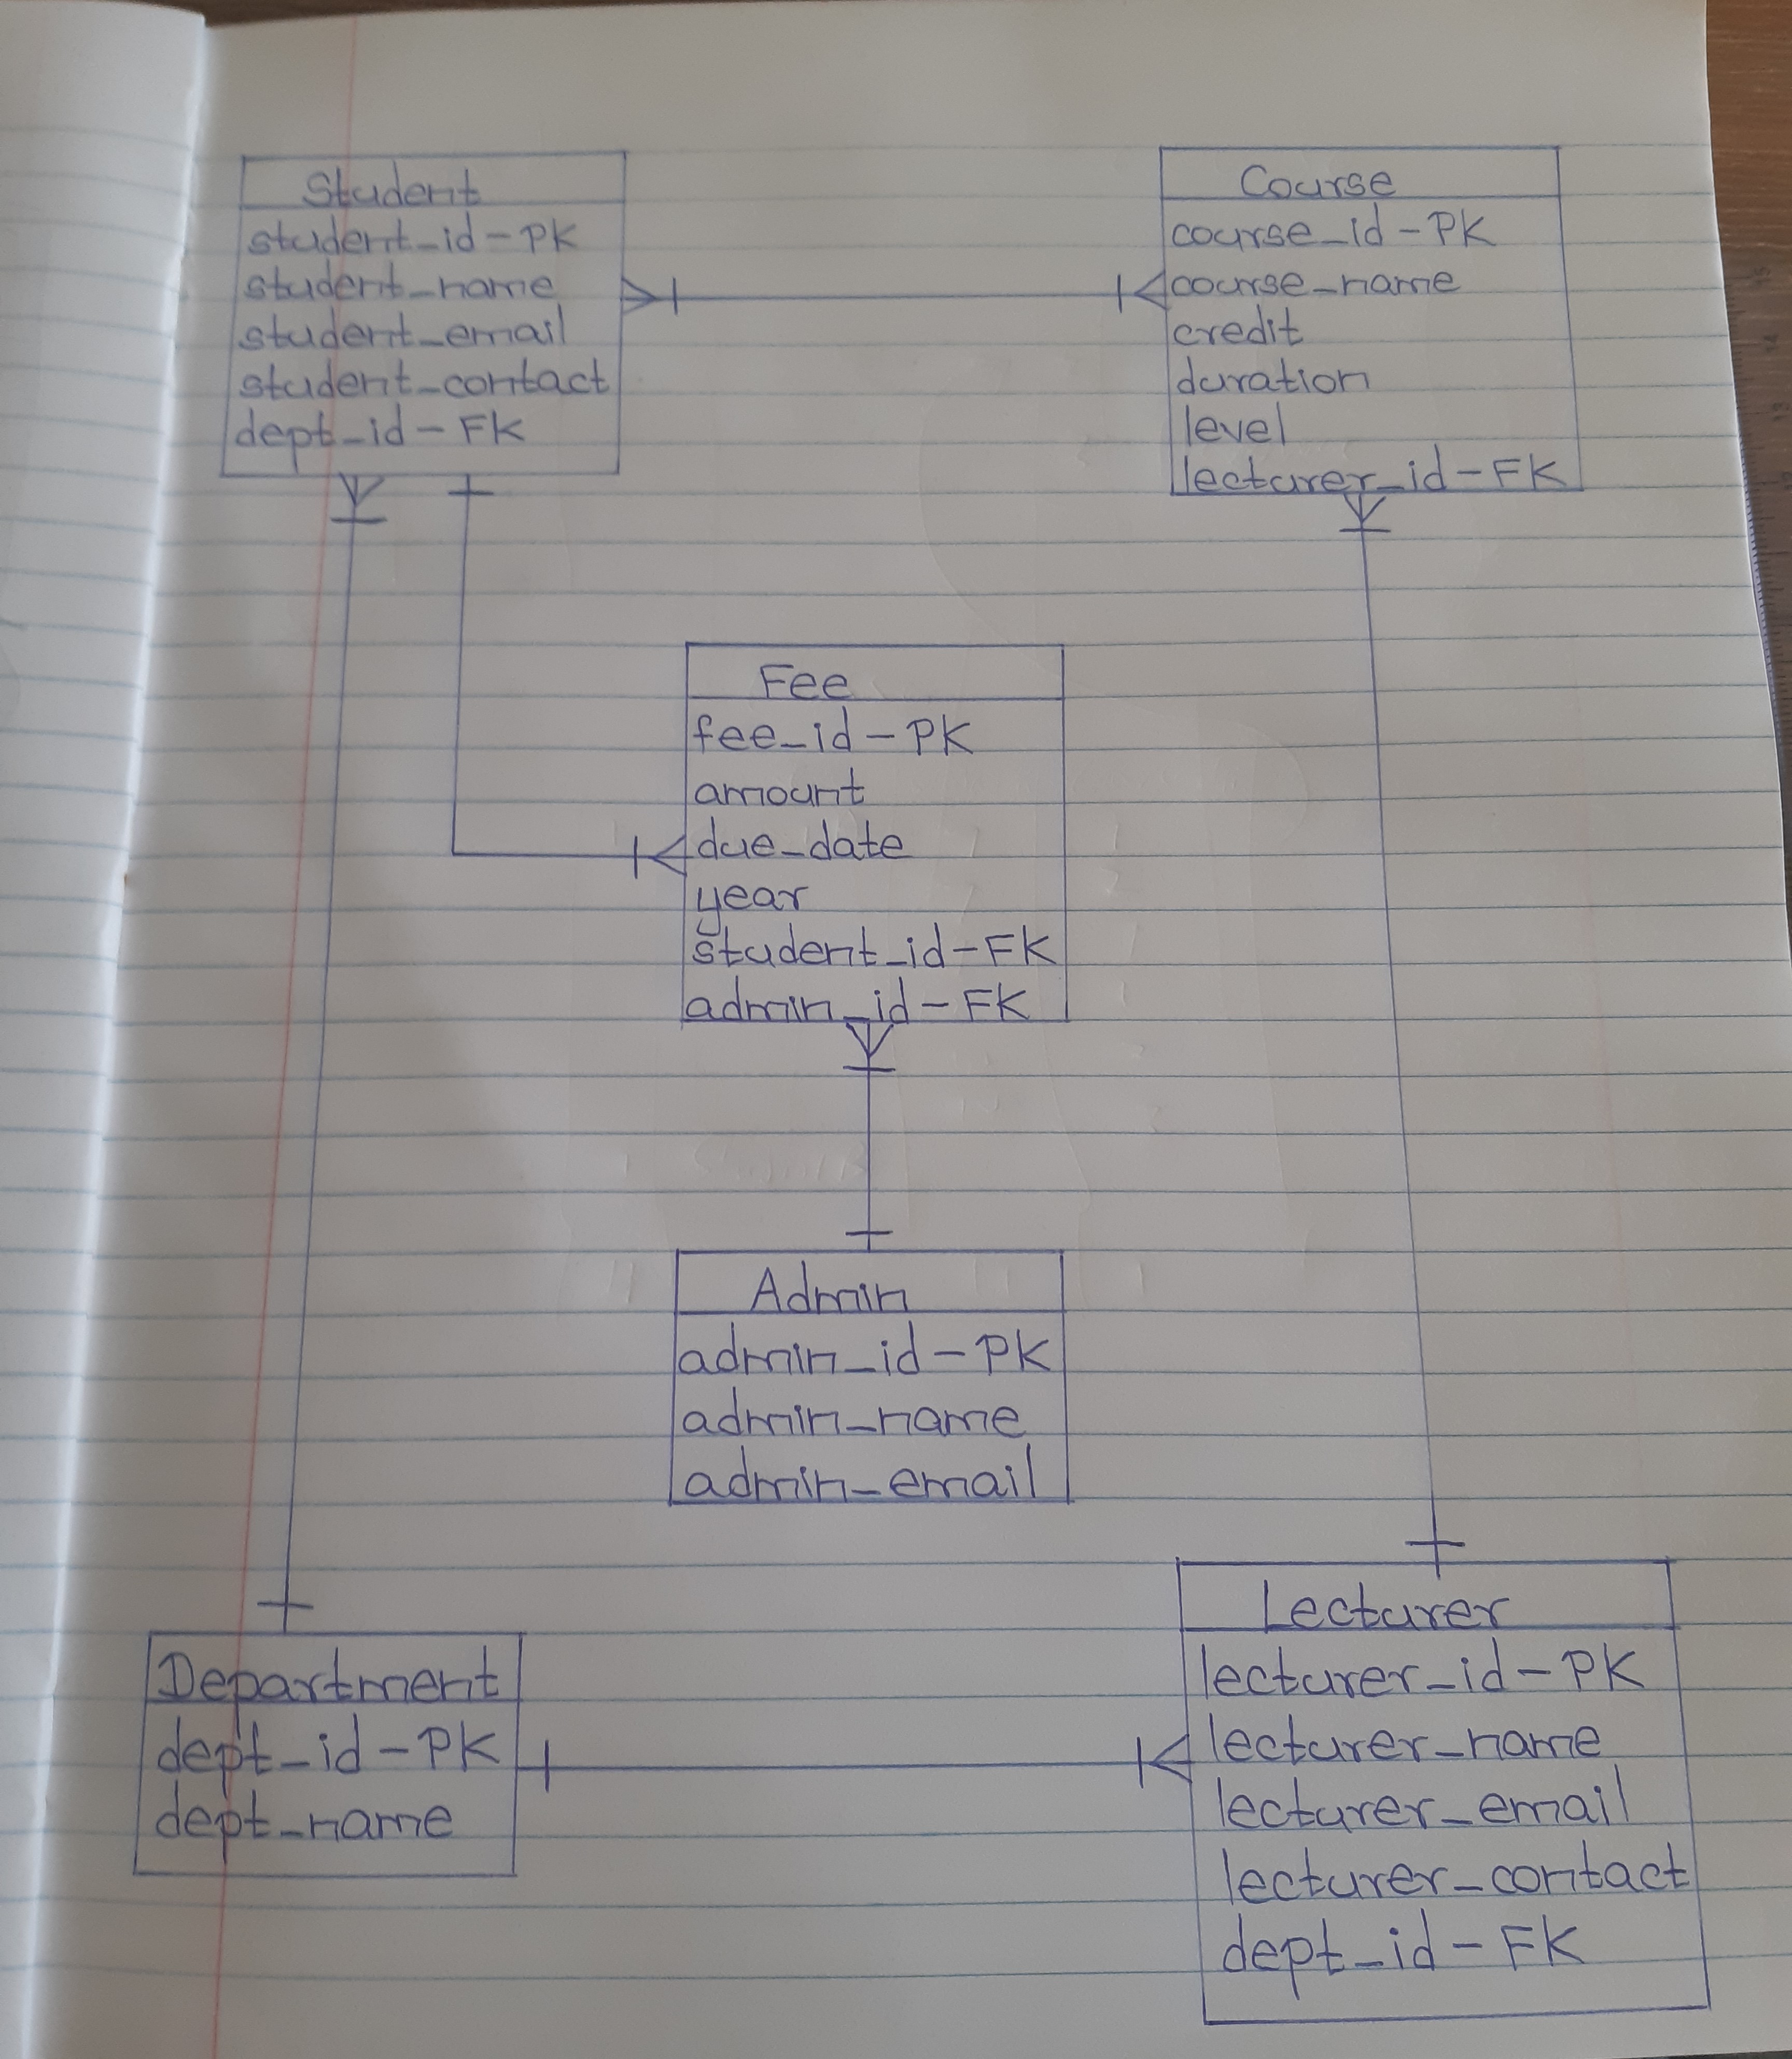 Student
student_id-PK
student_name
student_email
student_contact
dept_id-FK
Course
course_id-PK
course_name
credit
duration
level
lecturer_id-FK
Fee
fee_id-PK
amount
due_date
year
student_id-FK
admin_id-FK
Admin
admin_id-PK
admin_name
admin_email
Department
dept_id-PK
dept_name
Lecturer
lecturer_id-PK
lecturer_name
lecturer_email
lecturer_contact
dept_id-FK